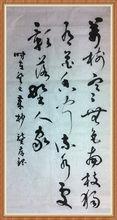 萬樹寒無色南枝獨
有花香聞流水處
影落野人家